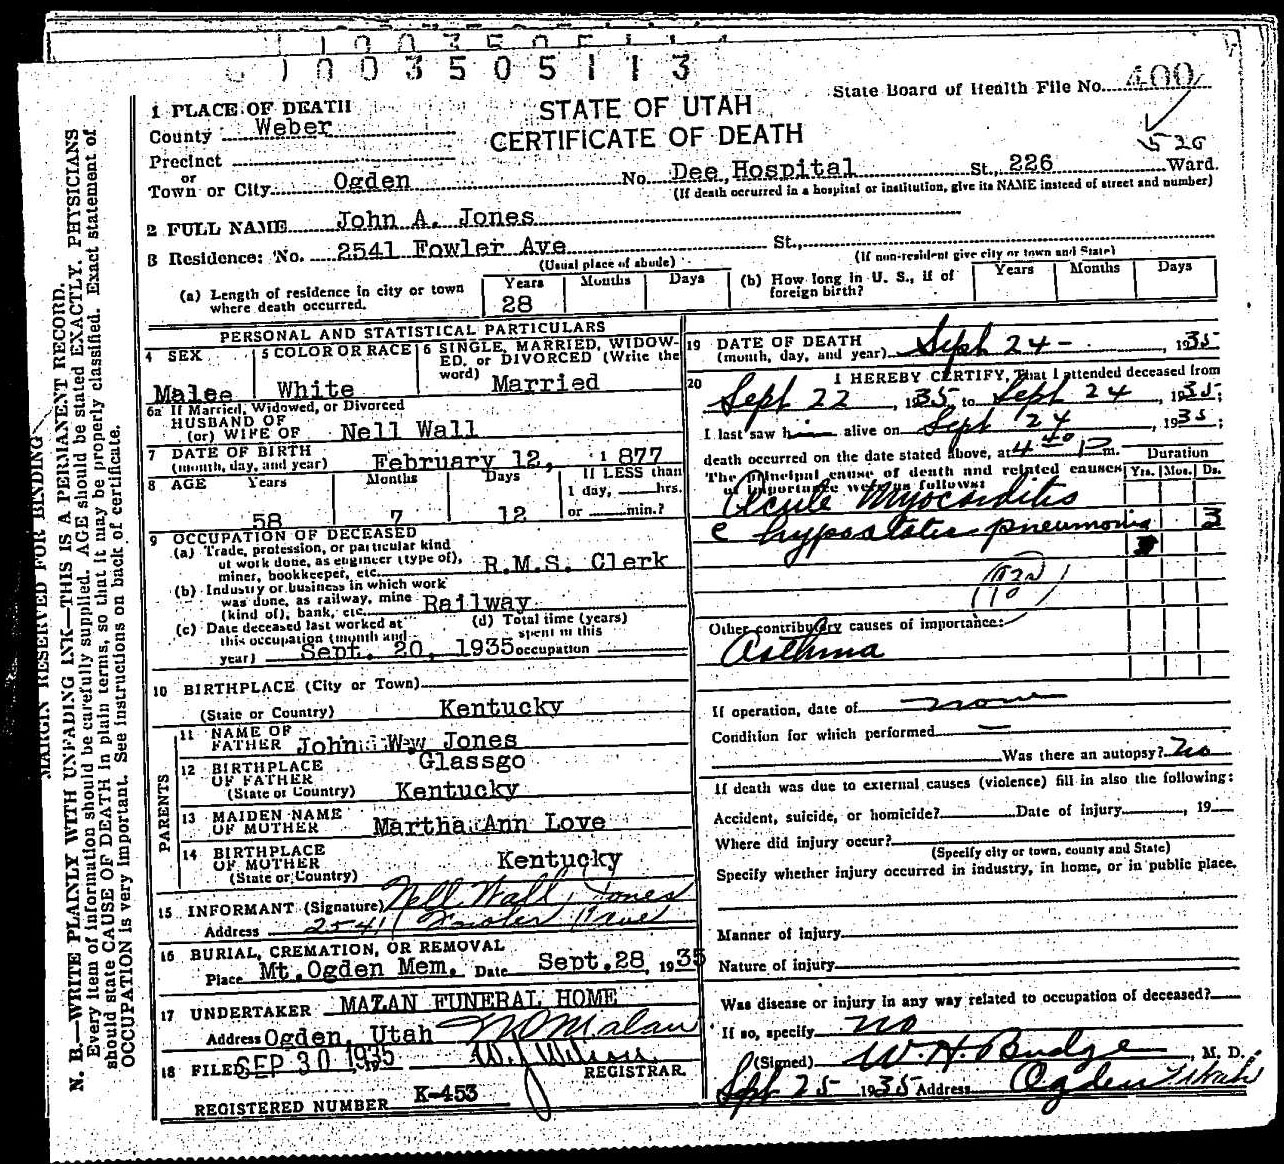 1 0 0 3 5 0 5 1 1 3
State Board of Health File No. 400
1 PLACE OF DEATH
STATE OF UTAH
County Weber
CERTIFICATE OF DEATH
Precinct
or
Town or City Ogden No. Dee Hospital St., 226 Ward.
(If death occurred in a hospital or institution, give its NAME instead of street and number)
2 FULL NAME John A. Jones
3 Residence: No. 2541 Fowler Ave St.,
(Usual place of abode) (If non-resident give city or town and State)
(a) Length of residence in city or town where death occurred. Years 28 Months Days
(b) How long in U. S., if of foreign birth? Years Months Days
PERSONAL AND STATISTICAL PARTICULARS
4 SEX Malee
5 COLOR OR RACE White
6 SINGLE, MARRIED, WIDOWED, or DIVORCED (Write the word) Married
6a If Married, Widowed, or Divorced
HUSBAND OF
(or) WIFE OF Nell Wall
7 DATE OF BIRTH
(month, day, and year) February 12, 1877
8 AGE Years 58 Months 7 Days 12
If LESS than
1 day, hrs.
or min.?
9 OCCUPATION OF DECEASED
(a) Trade, profession, or particular kind
of work done, as engineer (type of),
miner, bookkeeper, etc. R.M.S. Clerk
(b) Industry or business in which work
was done, as railway, mine
(kind of), bank, etc. Railway
(c) Date deceased last worked at
this occupation (month and
year) Sept. 20, 1935
(d) Total time (years)
spent in this
occupation
10 BIRTHPLACE (City or Town)
(State or Country) Kentucky
PARENTS
11 NAME OF
FATHER John W. Jones
12 BIRTHPLACE
OF FATHER Glassgo
(State or Country) Kentucky
13 MAIDEN NAME
OF MOTHER Martha Ann Love
14 BIRTHPLACE
OF MOTHER Kentucky
(State or Country)
15 INFORMANT (Signature) Nell Wall Jones
Address 2541 Fowler Ave
16 BURIAL, CREMATION, OR REMOVAL
Place Mt. Ogden Mem. Date Sept. 28, 1935
17 UNDERTAKER MALAN FUNERAL HOME
Address Ogden, Utah
18 FILED SEP 30 1935
REGISTRAR.
REGISTERED NUMBER K-453
19 DATE OF DEATH
(month, day, and year) Sept 24- , 1935
20 I HEREBY CERTIFY, That I attended deceased from
Sept 22 , 1935 to Sept 24 , 1935;
I last saw him alive on Sept 24 , 1935;
death occurred on the date stated above, at 4 40 P m.
The principal cause of death and related causes
of importance were as follows:
Duration
Yrs. Mos. Ds.
Acute Myocarditis
c hypostatic pneumonia 3
Other contributory causes of importance:
Asthma
If operation, date of none
Condition for which performed —
Was there an autopsy? No
If death was due to external causes (violence) fill in also the following:
Accident, suicide, or homicide? Date of injury , 19
Where did injury occur?
(Specify city or town, county and State)
Specify whether injury occurred in industry, in home, or in public place.
Manner of injury
Nature of injury
Was disease or injury in any way related to occupation of deceased?
If so, specify no
(Signed) W. H. Budge , M. D.
Sept 25 1935 Address Ogden Utah
MARGIN RESERVED FOR BINDING
N. B.—WRITE PLAINLY WITH UNFADING INK—THIS IS A PERMANENT RECORD.
Every item of information should be carefully supplied. AGE should be stated EXACTLY. PHYSICIANS
should state CAUSE OF DEATH in plain terms, so that it may be properly classified. Exact statement of
OCCUPATION is very important. See instructions on back of certificate.